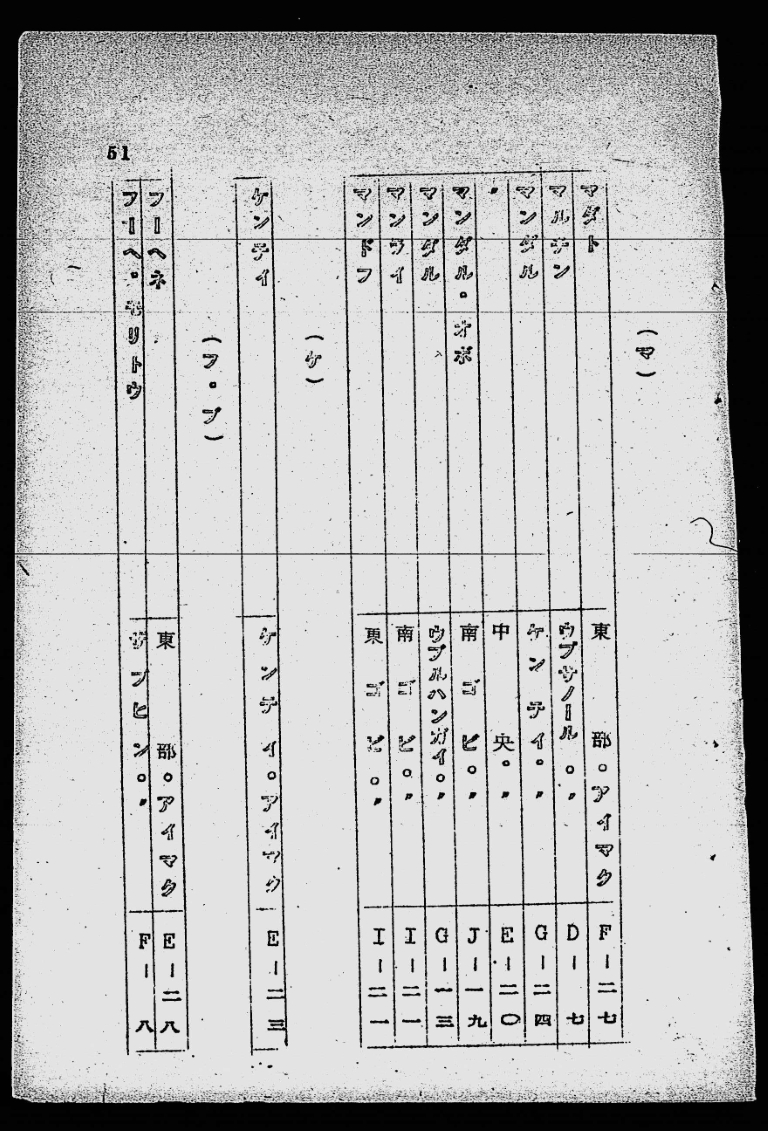 51
(マ)
マダト 東部。アイマク F－二七
マルチン ウブサノール。〃 D－七
マンダル ケンテイ。〃 G－二四
〃 中央。〃 E－二〇
マンダル。オボ 南ゴビ。〃 J－一九
マンダル ウブルハンガイ。〃 G－一三
マンライ 南ゴビ。〃 I－二一
マンドフ 東ゴビ。〃 I－二一
(ケ)
ケンテイ ケンテイ。アイマク E－二三
(フ。ブ)
フーヘネ 東部。アイマク E－二八
フーヘ。モリトウ ザブヒン。〃 F－八